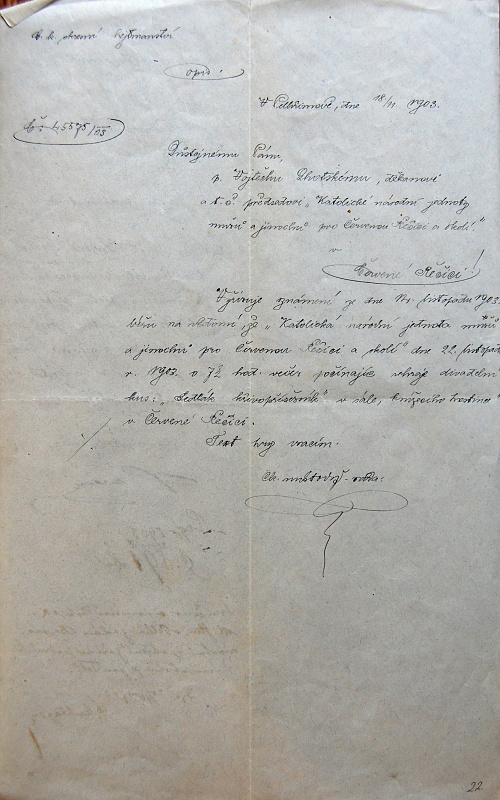 C. k. okresní hejtmanství
opis.
V Pelhřimově, dne 18/11 1903.
Čís. 45575/03
Důstojnému Pánu,
p. Vojtěchu , děkanovi
a t. č. předsedovi „Katolické národní jednoty
mužů a jinochů pro Červenou Řečici a okolí."
v
Červené Řečici!
Vyřizuje známení ze dne listopadu 1903
na vědomí, že „Katolická národní jednota mužů
a jinochů pro Červenou Řečici a okolí" dne 22. listopadu
r. 1903 o 7½ hod. večer počínajíc sehraje divadelní
kus: „Sedlák křivopřísežník" v sále „knížecího hostince"
v Červené Řečici.
Text hry vracím.
22